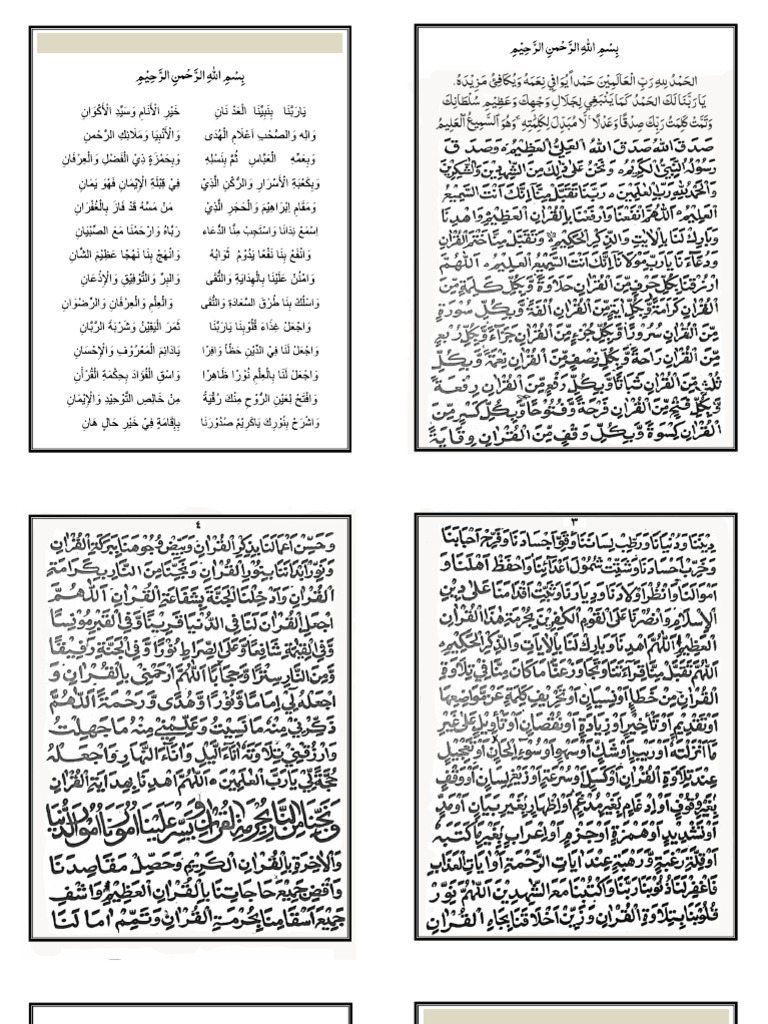 بِسْمِ اللهِ الرَّحْمنِ الرَّحِيْمِ
الْحَمْدُ لِلهِ رَبِّ الْعَالَمِيْنَ حَمْداً يُوَافِي نِعَمَهُ وَيُكَافِئُ مَزِيْدَهُ.
يَا رَبَّنَا لَكَ الْحَمْدُ كَمَا يَنْبَغِي لِجَلَالِ وَجْهِكَ وَعَظِيْمِ سُلْطَانِكَ
وَتَمَّتْ كَلِمَتُ رَبِّكَ صِدْقًا وَعَدْلًا ۚ لَا مُبَدِّلَ لِكَلِمٰتِهٖ ۚ وَهُوَ السَّمِيعُ الْعَلِيمُ
صَدَقَ اللهُ صَدَقَ اللهُ الْعَلِيُّ الْعَظِيْمُ ۞ وَصَدَقَ
رَسُوْلُهُ النَّبِيُّ الْكَرِيْمُ ۞ وَنَحْنُ عَلٰى ذٰلِكَ مِنَ الشّٰهِدِيْنَ وَالشّٰكِرِيْنَ
وَالْحَمْدُ لِلّٰهِ رَبِّ الْعٰلَمِيْنَ ۞ رَبَّنَا تَقَبَّلْ مِنَّا اِنَّكَ اَنْتَ السَّمِيْعُ
الْعَلِيْمُ ۞ اَللّٰهُمَّ انْفَعْنَا وَارْفَعْنَا بِالْقُرْاٰنِ الْعَظِيْمِ ۞ وَاهْدِنَا
وَبَارِكْ لَنَا بِالْاٰيٰتِ وَالذِّكْرِ الْحَكِيْمِ ۞ وَتَقَبَّلْ مِنَّا خَتْمَ الْقُرْاٰنِ
وَدُعَاءَنَا يَا رَبِّ مَوْلَانَا اِنَّكَ اَنْتَ السَّمِيْعُ الْعَلِيْمُ ۞ اَللّٰهُمَّ
ارْزُقْنَا بِكُلِّ حَرْفٍ مِّنَ الْقُرْاٰنِ حَلَاوَةً وَّبِكُلِّ كَلِمَةٍ مِّنَ
الْقُرْاٰنِ كَرَامَةً وَّبِكُلِّ اٰيَةٍ مِّنَ الْقُرْاٰنِ اُلْفَةً وَّبِكُلِّ سُوْرَةٍ
مِّنَ الْقُرْاٰنِ سُرُوْرًا وَّبِكُلِّ جُزْءٍ مِّنَ الْقُرْاٰنِ جَزَآءً وَّبِكُلِّ رُبُعٍ
مِّنَ الْقُرْاٰنِ رَاحَةً وَّبِكُلِّ نِصْفٍ مِّنَ الْقُرْاٰنِ نِعْمَةً وَّبِكُلِّ
ثُلُثٍ مِّنَ الْقُرْاٰنِ ثَبَاتًا وَّبِكُلِّ رَفْعٍ مِّنَ الْقُرْاٰنِ رِفْعَةً
وَّبِكُلِّ فَتْحٍ مِّنَ الْقُرْاٰنِ فَرْحَةً وَّفُتُوْحًا وَّبِكُلِّ كَسْرٍ مِّنَ
الْقُرْاٰنِ كِسْوَةً وَّبِكُلِّ وَقْفٍ مِّنَ الْقُرْاٰنِ وِقَايَةً
بِسْمِ اللهِ الرَّحْمنِ الرَّحِيْمِ
يَارَبَّنَا بِنَبِيِّنَا الْعَدْنَانِ خَيْرِ الْأَنَامِ وَسَيِّدِ الْأَكْوَانِ
وَالِهِ وَالصَّحْبِ اَعْلَامِ الْهُدَى وَالْأَنْبِيَا وَمَلَائِكِ الرَّحْمنِ
وَبِعَمِّهِ الْعَبَّاسِ ثُمَّ بِنَسْلِهِ وَبِحَمْزَةٍ ذِي الْفَضْلِ وَالْعِرْفَانِ
وَبِكَعْبَةِ الْأَسْرَارِ وَالرُّكْنِ الَّذِيْ فِيْ قِبْلَةِ الْإِيْمَانِ فَهْوَ يَمَانِ
وَمَقَامِ اِبْرَاهِيْمَ وَالْحَجَرِ الَّذِيْ مَنْ مَسَّهُ قَدْ فَازَ بِالْغُفْرَانِ
اِسْمَعْ نِدَانَا وَاسْتَجِبْ مِنَّا الدُّعَاء رَبَّاهُ وَارْحَمْنَا مَعَ الصِّبْيَانِ
وَانْفَعْ بِنَا نَفْعًا يَدُوْمُ ثَوَابُهُ وَانْهَجْ بِنَا نَهْجًا عَظِيْمَ الشَّانِ
وَامْنُنْ عَلَيْنَا بِالْهِدَايَةِ وَالتُّقَى وَالْبِرِّ وَالتَّوْفِيْقِ وَالْإِذْعَانِ
وَاسْلُكْ بِنَا طُرُقَ السَّعَادَةِ وَالتُّقَى وَالْعِلْمِ وَالْعِرْفَانِ وَالرِّضْوَانِ
وَاجْعَلْ غِذَاءَ قُلُوْبِنَا يَارَبَّنَا ثَمَرَ الْيَقِيْنِ وَشَرْبَةَ الرَّيَّانِ
وَاجْعَلْ لَنَا فِي الدِّيْنِ حَظًّا وَافِرًا يَادَائِمَ الْمَعْرُوْفِ وَالْإِحْسَانِ
وَاجْعَلْ لَنَا بِالْعِلْمِ نُوْرًا ظَاهِرًا وَاسْقِ الْفُؤَادَ بِحِكْمَةِ الْقُرْأنِ
وَافْتَحْ لِعَيْنِ الرُّوْحِ مِنْكَ رُقْيَةً مِنْ خَالِصِ التَّوْحِيْدِ وَالْإِيْمَانِ
وَاشْرَحْ بِنُوْرِكَ يَاكَرِيْمُ صُدُوْرَنَا بِإِقَامَةٍ فِيْ خَيْرِ حَالٍ هَانِ
٣
دِيْنِنَا وَدُنْيَانَا وَرَطِّبْ لِسَانَنَا وَقَوِّ اَجْسَادَنَا وَفَرِّحْ اَحْبَابَنَا
وَخَرِّبْ اَحْسَادَنَا وَشَتِّتْ شُمُوْلَ اَعْدَآئِنَا وَاحْفَظْ اَهْلَنَا وَ
اَمْوَالَنَا وَانْظُرْ اَوْلَادَنَا وَدِيَارَنَا وَثَبِّتْ اَقْدَامَنَا عَلٰى دِيْنِ
الْاِسْلَامِ وَانْصُرْنَا عَلَى الْقَوْمِ الْكٰفِرِيْنَ بِحُرْمَةِ هٰذَا الْقُرْاٰنِ
الْعَظِيْمِ اَللّٰهُمَّ اهْدِنَا وَبَارِكْ لَنَا بِالْاٰيَاتِ وَالذِّكْرِ الْحَكِيْمِ ۞
اَللّٰهُمَّ تَقَبَّلْ مِنَّا قِرَآءَتَنَا وَتَجَاوَزْ عَنَّا مَا كَانَ مِنَّا فِيْ تِلَاوَةِ
الْقُرْاٰنِ مِنْ خَطَإٍ اَوْ نِسْيَانٍ اَوْ تَحْرِيْفِ كَلِمَةٍ عَنْ مَّوَاضِعِهَا
اَوْ تَقْدِيْمٍ اَوْ تَأْخِيْرٍ اَوْ زِيَادَةٍ اَوْ نُقْصَانٍ اَوْ تَأْوِيْلٍ عَلٰى غَيْرِ
مَا اَنْزَلْتَهٗ اَوْ رَيْبٍ اَوْ شَكٍّ اَوْ سَهْوٍ اَوْ سُوْءِ اِلْحَانٍ اَوْ تَعْجِيْلٍ
عِنْدَ تِلَاوَةِ الْقُرْاٰنِ اَوْ كَسَلٍ اَوْ سُرْعَةٍ اَوْ زَيْغِ لِسَانٍ اَوْ وَقْفٍ
بِغَيْرِ وُقُوْفٍ اَوْ اِدْغَامٍ بِغَيْرِ مُدْغَمٍ اَوْ اِظْهَارٍ بِغَيْرِ بَيَانٍ اَوْ مَدٍّ
اَوْ تَشْدِيْدٍ اَوْ هَمْزَةٍ اَوْ جَزْمٍ اَوْ اِعْرَابٍ بِغَيْرِ مَا كَتَبَهٗ
اَوْ قِلَّةِ رَغْبَةٍ وَّرَهْبَةٍ عِنْدَ اٰيَاتِ الرَّحْمَةِ اَوْ اٰيَاتِ الْعَذَابِ
فَاغْفِرْ لَنَا ذُنُوْبَنَا رَبَّنَا وَاكْتُبْنَا مَعَ الشّٰهِدِيْنَ اَللّٰهُمَّ نَوِّرْ
قُلُوْبَنَا بِتِلَاوَةِ الْقُرْاٰنِ وَزَيِّنْ اَخْلَاقَنَا بِجَاهِ الْقُرْاٰنِ
٤
وَحَسِّنْ اَعْمَالَنَا بِذِكْرِ الْقُرْاٰنِ وَبَيِّضْ وُجُوْهَنَا بِبَرَكَةِ الْقُرْاٰنِ
وَنَوِّرْ اَبْدَانَنَا بِنُوْرِ الْقُرْاٰنِ وَنَجِّنَا مِنَ النَّارِ بِكَرَامَةِ
الْقُرْاٰنِ وَاَدْخِلْنَا الْجَنَّةَ بِشَفَاعَةِ الْقُرْاٰنِ اَللّٰهُمَّ
اجْعَلِ الْقُرْاٰنَ لَنَا فِي الدُّنْيَا قَرِيْنًا وَّفِي الْقَبْرِ مُوْنِسًا
وَّفِي الْقِيٰمَةِ شَافِعًا وَّعَلَى الصِّرَاطِ نُوْرًا وَّفِي الْجَنَّةِ رَفِيْقًا
وَّمِنَ النَّارِ سِتْرًا وَّحِجَابًا اَللّٰهُمَّ ارْحَمْنِيْ بِالْقُرْاٰنِ وَ
اجْعَلْهُ لِيْ اِمَامًا وَّنُوْرًا وَّهُدًى وَّرَحْمَةً اَللّٰهُمَّ
ذَكِّرْنِيْ مِنْهُ مَا نَسِيْتُ وَعَلِّمْنِيْ مِنْهُ مَا جَهِلْتُ
وَارْزُقْنِيْ تِلَاوَتَهٗ اٰنَآءَ الَّيْلِ وَاٰنَآءَ النَّهَارِ وَاجْعَلْهُ
حُجَّةً لِّيْ يَا رَبَّ الْعٰلَمِيْنَ ۞ اَللّٰهُمَّ اهْدِنَا بِهِدَايَةِ الْقُرْاٰنِ
وَنَجِّنَا مِنَ النَّارِ بِحُرْمَةِ الْقُرْاٰنِ وَيَسِّرْ عَلَيْنَا اُمُوْرَنَا اُمُوْرَ الدُّنْيَا
وَالْاٰخِرَةِ بِالْقُرْاٰنِ الْكَرِيْمِ وَحَصِّلْ مَقَاصِدَنَا
وَاقْضِ جَمِيْعَ حَاجَاتِنَا بِالْقُرْاٰنِ الْعَظِيْمِ وَاشْفِ
جَمِيْعَ اَسْقَامِنَا بِحُرْمَةِ الْقُرْاٰنِ وَتَمِّمْ اٰمَالَنَا